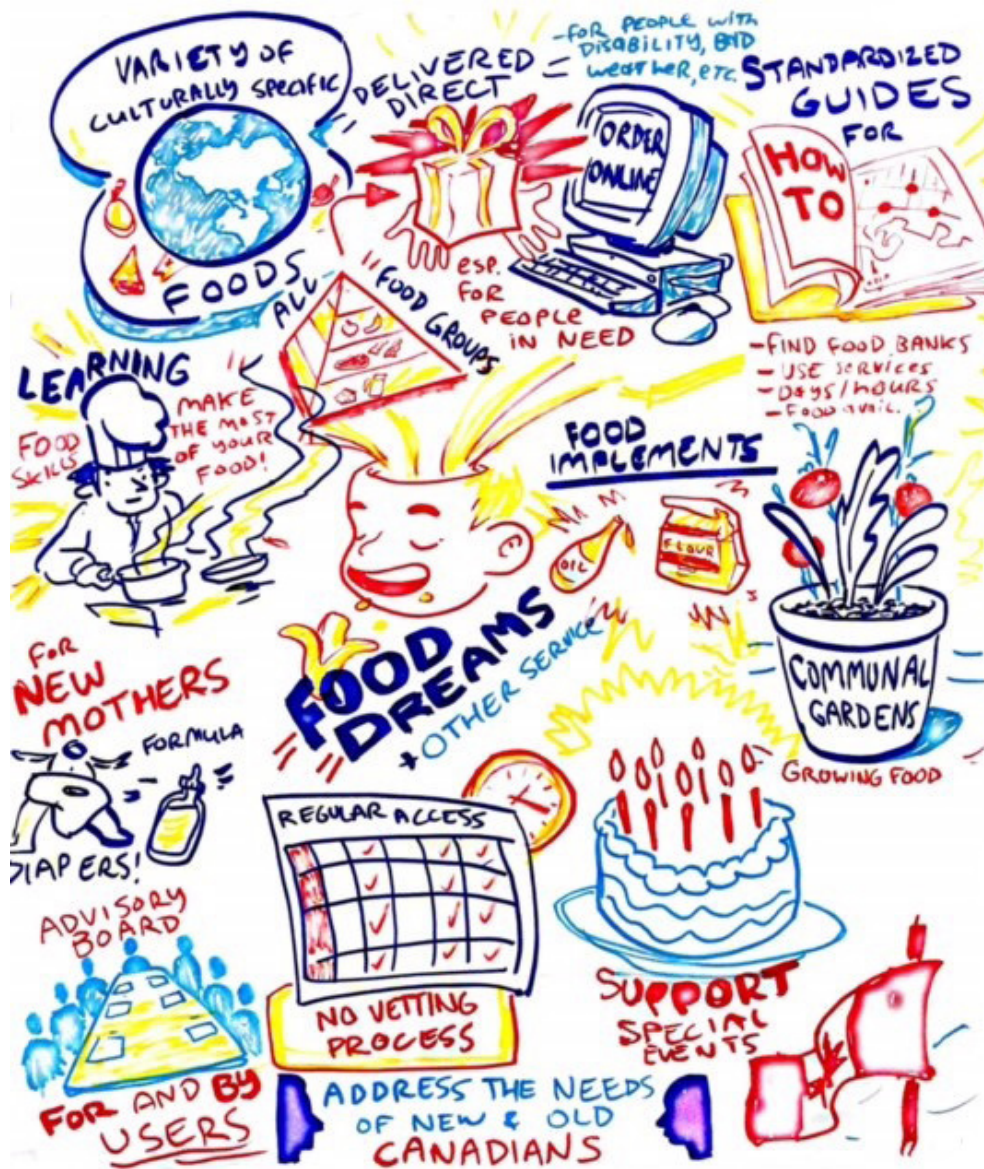 VARIETY OF
CULTURALLY SPECIFIC
FOODS
DELIVERED
DIRECT
-FOR PEOPLE WITH
DISABILITY, BAD
WEATHER, ETC.
ORDER
ONLINE
esp.
FOR
PEOPLE
IN NEED
STANDARDIZED
GUIDES
FOR
HOW
TO
-FIND FOOD BANKS
- USE SERVICES
- DAYS/HOURS
- FOOD AVAIL.
ALL
FOOD GROUPS
LEARNING
FOOD
SKILLS
MAKE
THE MOST
OF YOUR
FOOD!
FOOD
IMPLEMENTS
OIL
FLOUR
FOOD
DREAMS
+ OTHER SERVICE
COMMUNAL
GARDENS
GROWING FOOD
FOR
NEW
MOTHERS
FORMULA
DIAPERS!
REGULAR ACCESS
NO VETTING
PROCESS
SUPPORT
SPECIAL
EVENTS
ADVISORY
BOARD
FOR AND BY
USERS
ADDRESS THE NEEDS
OF NEW & OLD
CANADIANS